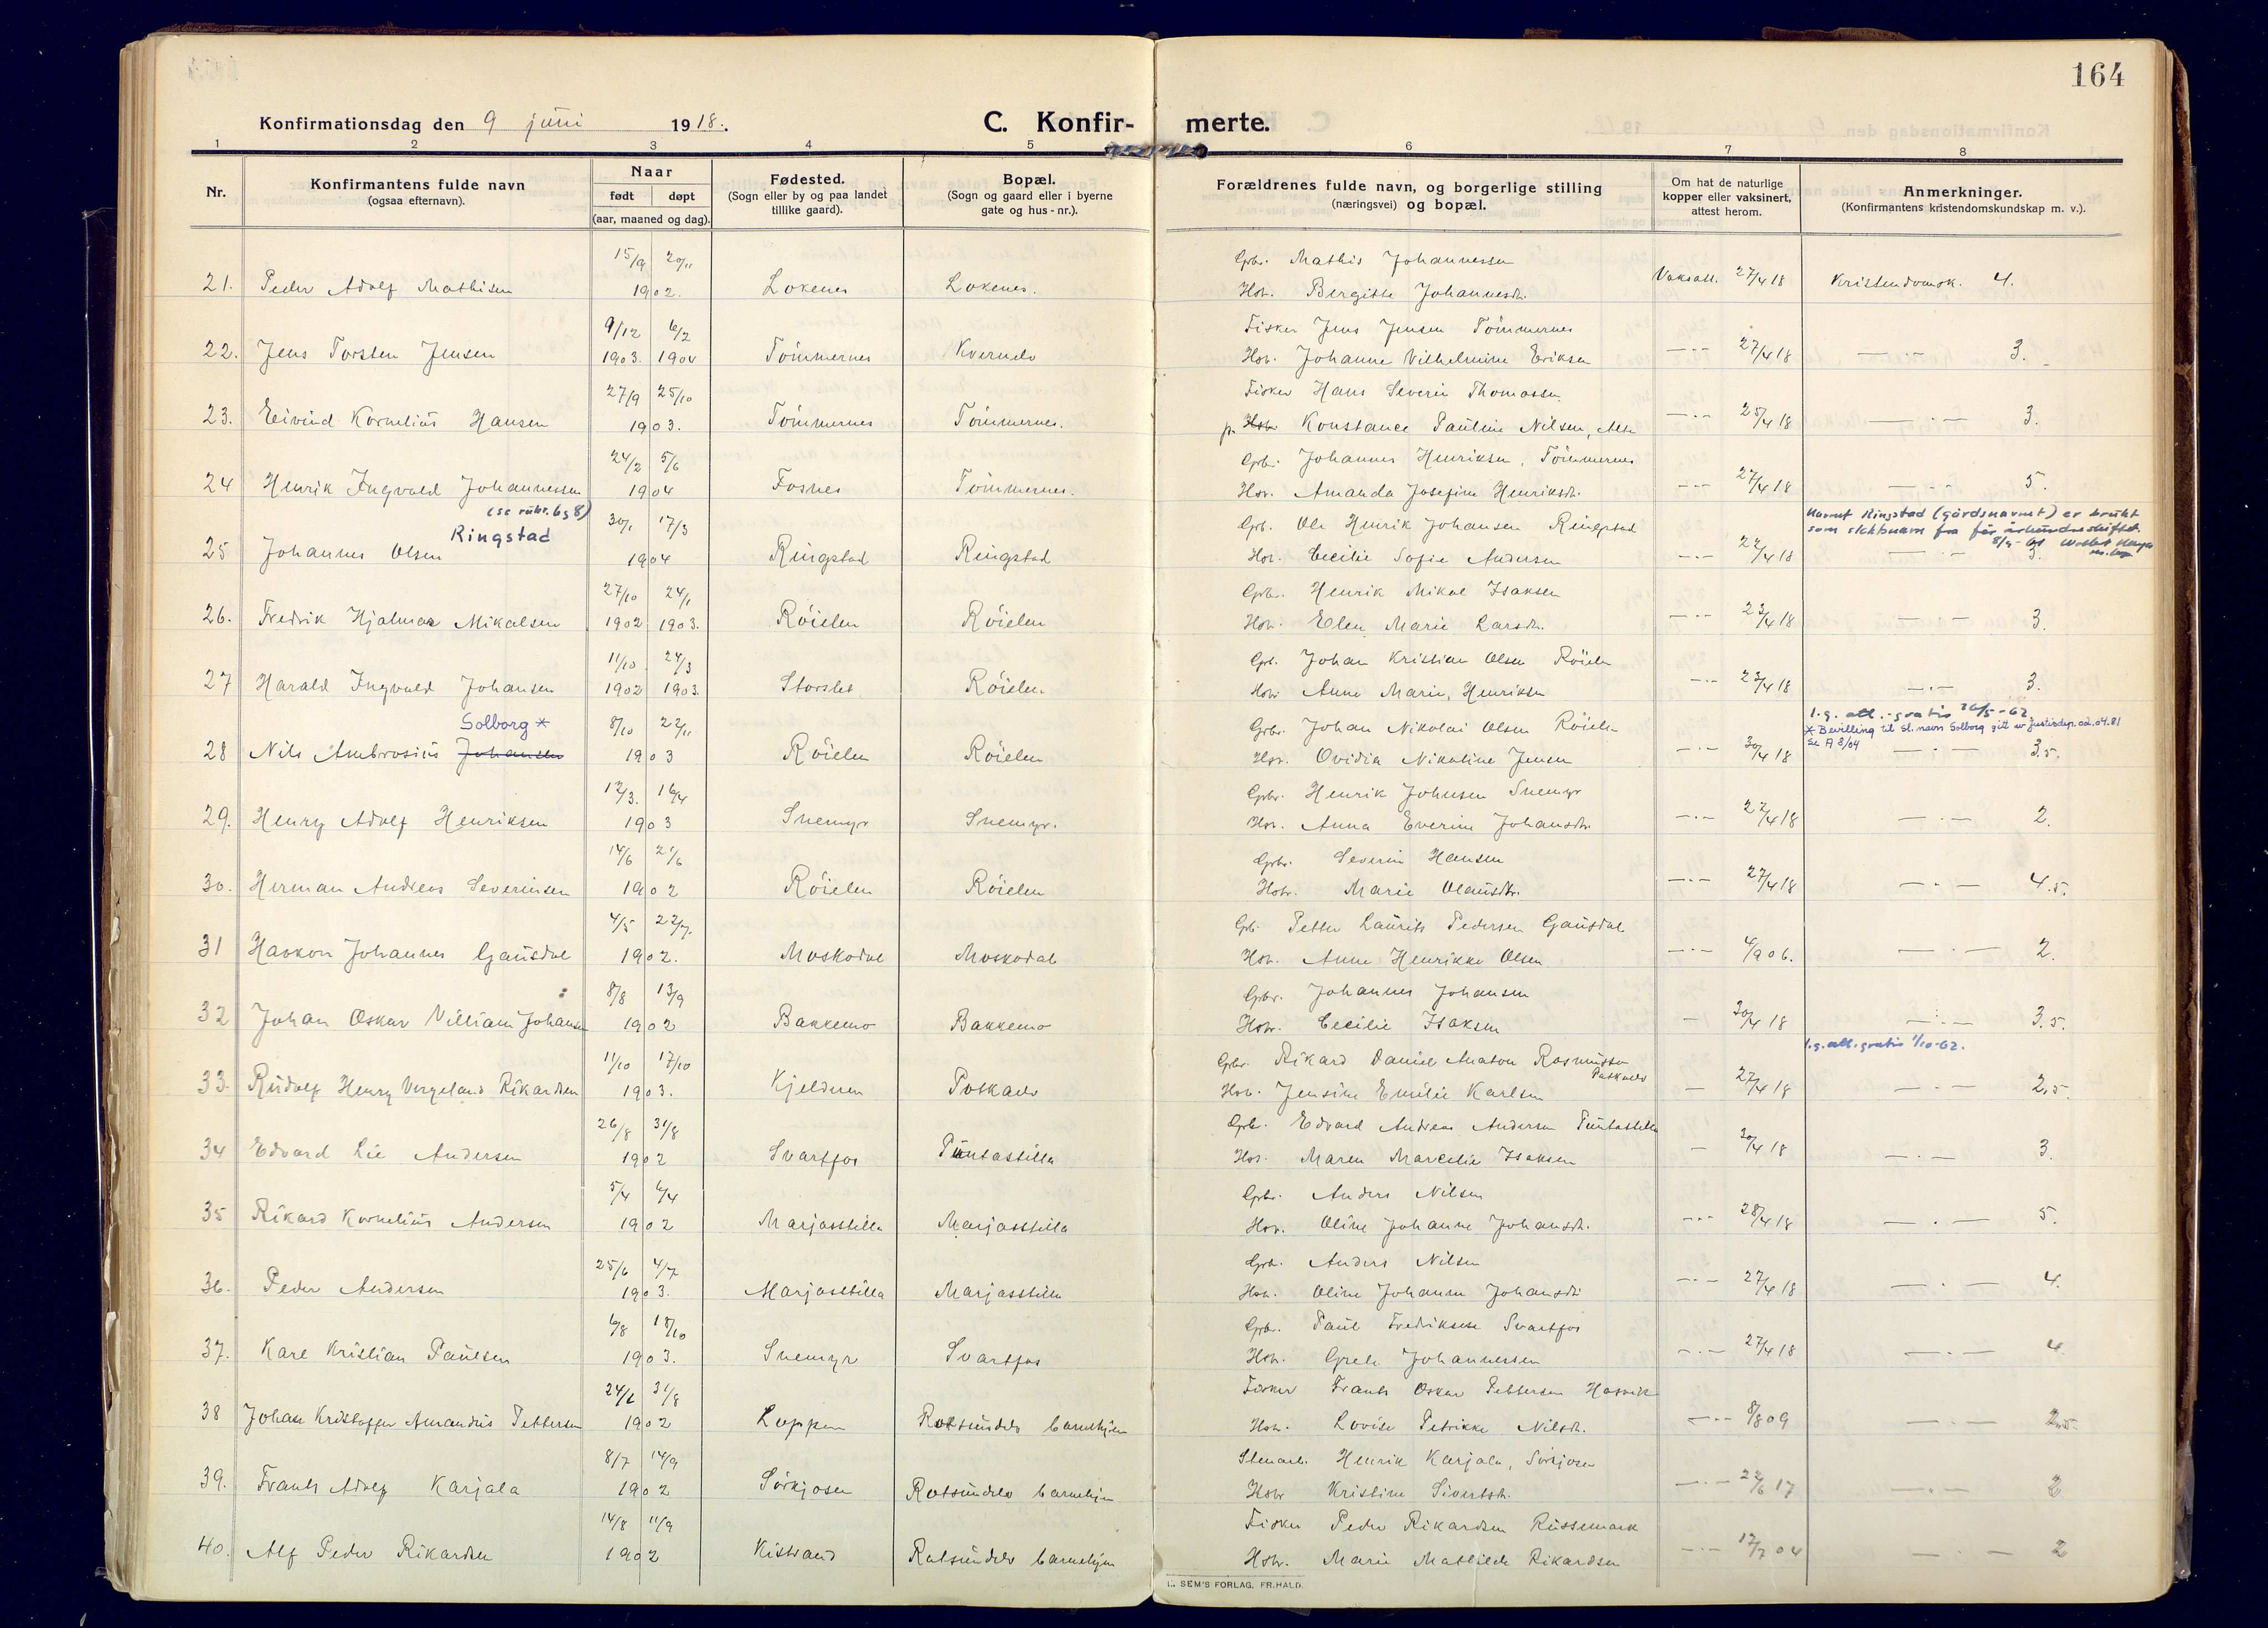 164
Konfirmationsdag den 9 juni 1918.
C. Konfirmerte.
1 2 3 4 5 6 7 8
Nr.
Konfirmantens fulde navn
(ogsaa efternavn).
Naar
født døpt
(aar, maaned og dag).
Fødested.
(Sogn eller by og paa landet
tillike gaard).
Bopæl.
(Sogn og gaard eller i byerne
gate og hus-nr.).
Forældrenes fulde navn, og borgerlige stilling
(næringsvei) og bopæl.
Om hat de naturlige
kopper eller vaksinert,
attest herom.
Anmerkninger.
(Konfirmantens kristendomskundskap m. v.).
15/9 20/11 Grbr. Mathis Johannessen
21. Peder Adolf Mathisen 1902. Lokenes Lokenes. Hstr. Bergitte Johannesdtr. Vaksatt. 27/4 18 Kristendomsk. 4.
9/12 6/2 Fisker Jens Jensen Tömmernes
22. Jens Torsten Jensen 1903. 1904 Tömmernes Kvernelv Hstr. Johanne Vilhelmine Eriksen —·— 27/4 18 —·— 3.
27/9 25/10 Fisker Hans Severin Thomassen.
23. Eivind Kornelius Hansen 1903. Tömmernes Tömmernes. Hstr Konstance Pauline Nilsen, —·— 25/4 18 —·— 3.
24/2 5/6 Grbr. Johannes Henriksen, Tömmernes
24 Henrik Ingvald Johannessen 1904 Fosnes Tömmernes. Hstr. Amanda Josefine Henriksdtr. —·— 27/4 18 —·— 5.
(se rubr. 6 g 8) 30/1 17/3 Grb. Ole Henrik Johansen Ringstad Navnet Ringstad (gårdsnavnet) er brukt
Ringstad som slektsnavn fra før århundreskiftet.
25 Johannes Olsen 1904 Ringstad Ringstad Hstr. Cecilie Sofie Andersen —·— 22/4 18 —·— 3.
27/10 24/1 Grbr. Henrik Mikal Isaksen
26. Fredrik Hjalmar Mikalsen 1902 1903. Röielen Röielen Hstr. Elen Marie Larsdtr. —·— 23/4 18 —·— 3.
11/10 24/3 Grb. Johan Kristian Olsen Röielen
27 Harald Ingvald Johansen 1902 1903. Storslet Röielen. Hstr Anne Marie Henriksen —·— 23/4 18 —·— 3.
l.g. att. gratis 26/5-62
Solborg * 8/10 22/11 Grbr. Johan Nikolai Olsen Röielen * Bevilling til sl.navn Solborg gitt av Justisdep. 02.04.81
Se A 8/04
28 Nils Ambrosius Johansen 1903 Röielen Röielen Hstr. Ovidia Nikoline Jensen —·— 30/4 18 —·— 3.5.
12/3. 16/4 Grbr. Henrik Johnsen Snemyr
29. Henry Adolf Henriksen 1903 Snemyr Snemyr. Hstr. Anna Everine Johansdtr. —·— 22/4 18 —·— 2.
14/6 21/6 Grbr. Severin Hansen
30. Herman Andreas Severinsen 1902 Röielen Röielen Hstr. Marie Olausdtr. —·— 27/4 18 —·— 4.5.
4/5 22/7. Grb. Petter Laurits Pedersen Gausdal
31 Haakon Johannes Gausdal 1902. Moskodal Moskodal Hstr. Anne Henrikke Olsen —·— 4/9 06. —·— 2.
8/8 13/9 Grbr. Johannes Johansen
32 Johan Oskar Villiam Johansen 1902 Bakkemo Bakkemo Hstr. Cecilie Isaksen — 30/4 18 —·— 3.5.
l.g. att. gratis 1/10-62.
11/10 17/10 Grbr. Rikard Daniel Anton Rasmussen
33. Rudolf Henry Vergeland Rikardsen 1903. Kjelderen Potkaelv Hstr. Jensine Emilie Karlsen — 27/4 18 —·— 2,5.
26/8 31/8 Grb. Edvard Andreas Andersen Puntastilla
34 Edvard Lie Andersen 1902 Svartfos Puntastilla Hstr. Maren Marcelie Isaksen — 30/4 18 —·— 3.
5/4 6/4 Grbr. Anders Nilsen
35 Rikard Kornelius Andersen 1902 Marjasstilla Marjasstilla Hstr. Oline Johanne Johansdtr. —·— 28/4 18 —·— 5.
25/6 4/7 Grb. Anders Nilsen
36. Peder Andersen 1903. Marjasstilla Marjasstilla Hstr. Oline Johanne Johansdtr —·— 27/4 18 —·— 4.
6/8 18/10 Grbr. Paul Fredriksen Svartfos
37. Karl Kristian Paulsen 1903. Snemyr Svartfos Hstr. Grete Johannessen —·— 27/4 18 —·— 4
31/8 Fisker Frants Oskar Pettersen Hasvik
38 Johan Kristoffer Amandus Pettersen 1902 Loppen Rotsundelv barnehjem Hstr. Lovise Petrikke Nilsdtr. —·— 8/8 09 —·— 2.5.
8/7 14/9 Stenarb. Henrik Karjala, Sörkjosen
39. Frants Adolf Karjala 1902 Sörkjosen Rotsundelv barnehjem Hstr Kristine Sivertsdtr. —·— 22/6 17 —·— 2
14/8 11/9 Fisker Peder Rikardsen Russemark
40. Alf Peder Rikardsen 1902 Kistrand Rotsundelv barnehjem Hstr. Marie Mathilde Rikardsen —·— 17/7 04 —·— 2
SEM'S FORLAG, FR.HALD.